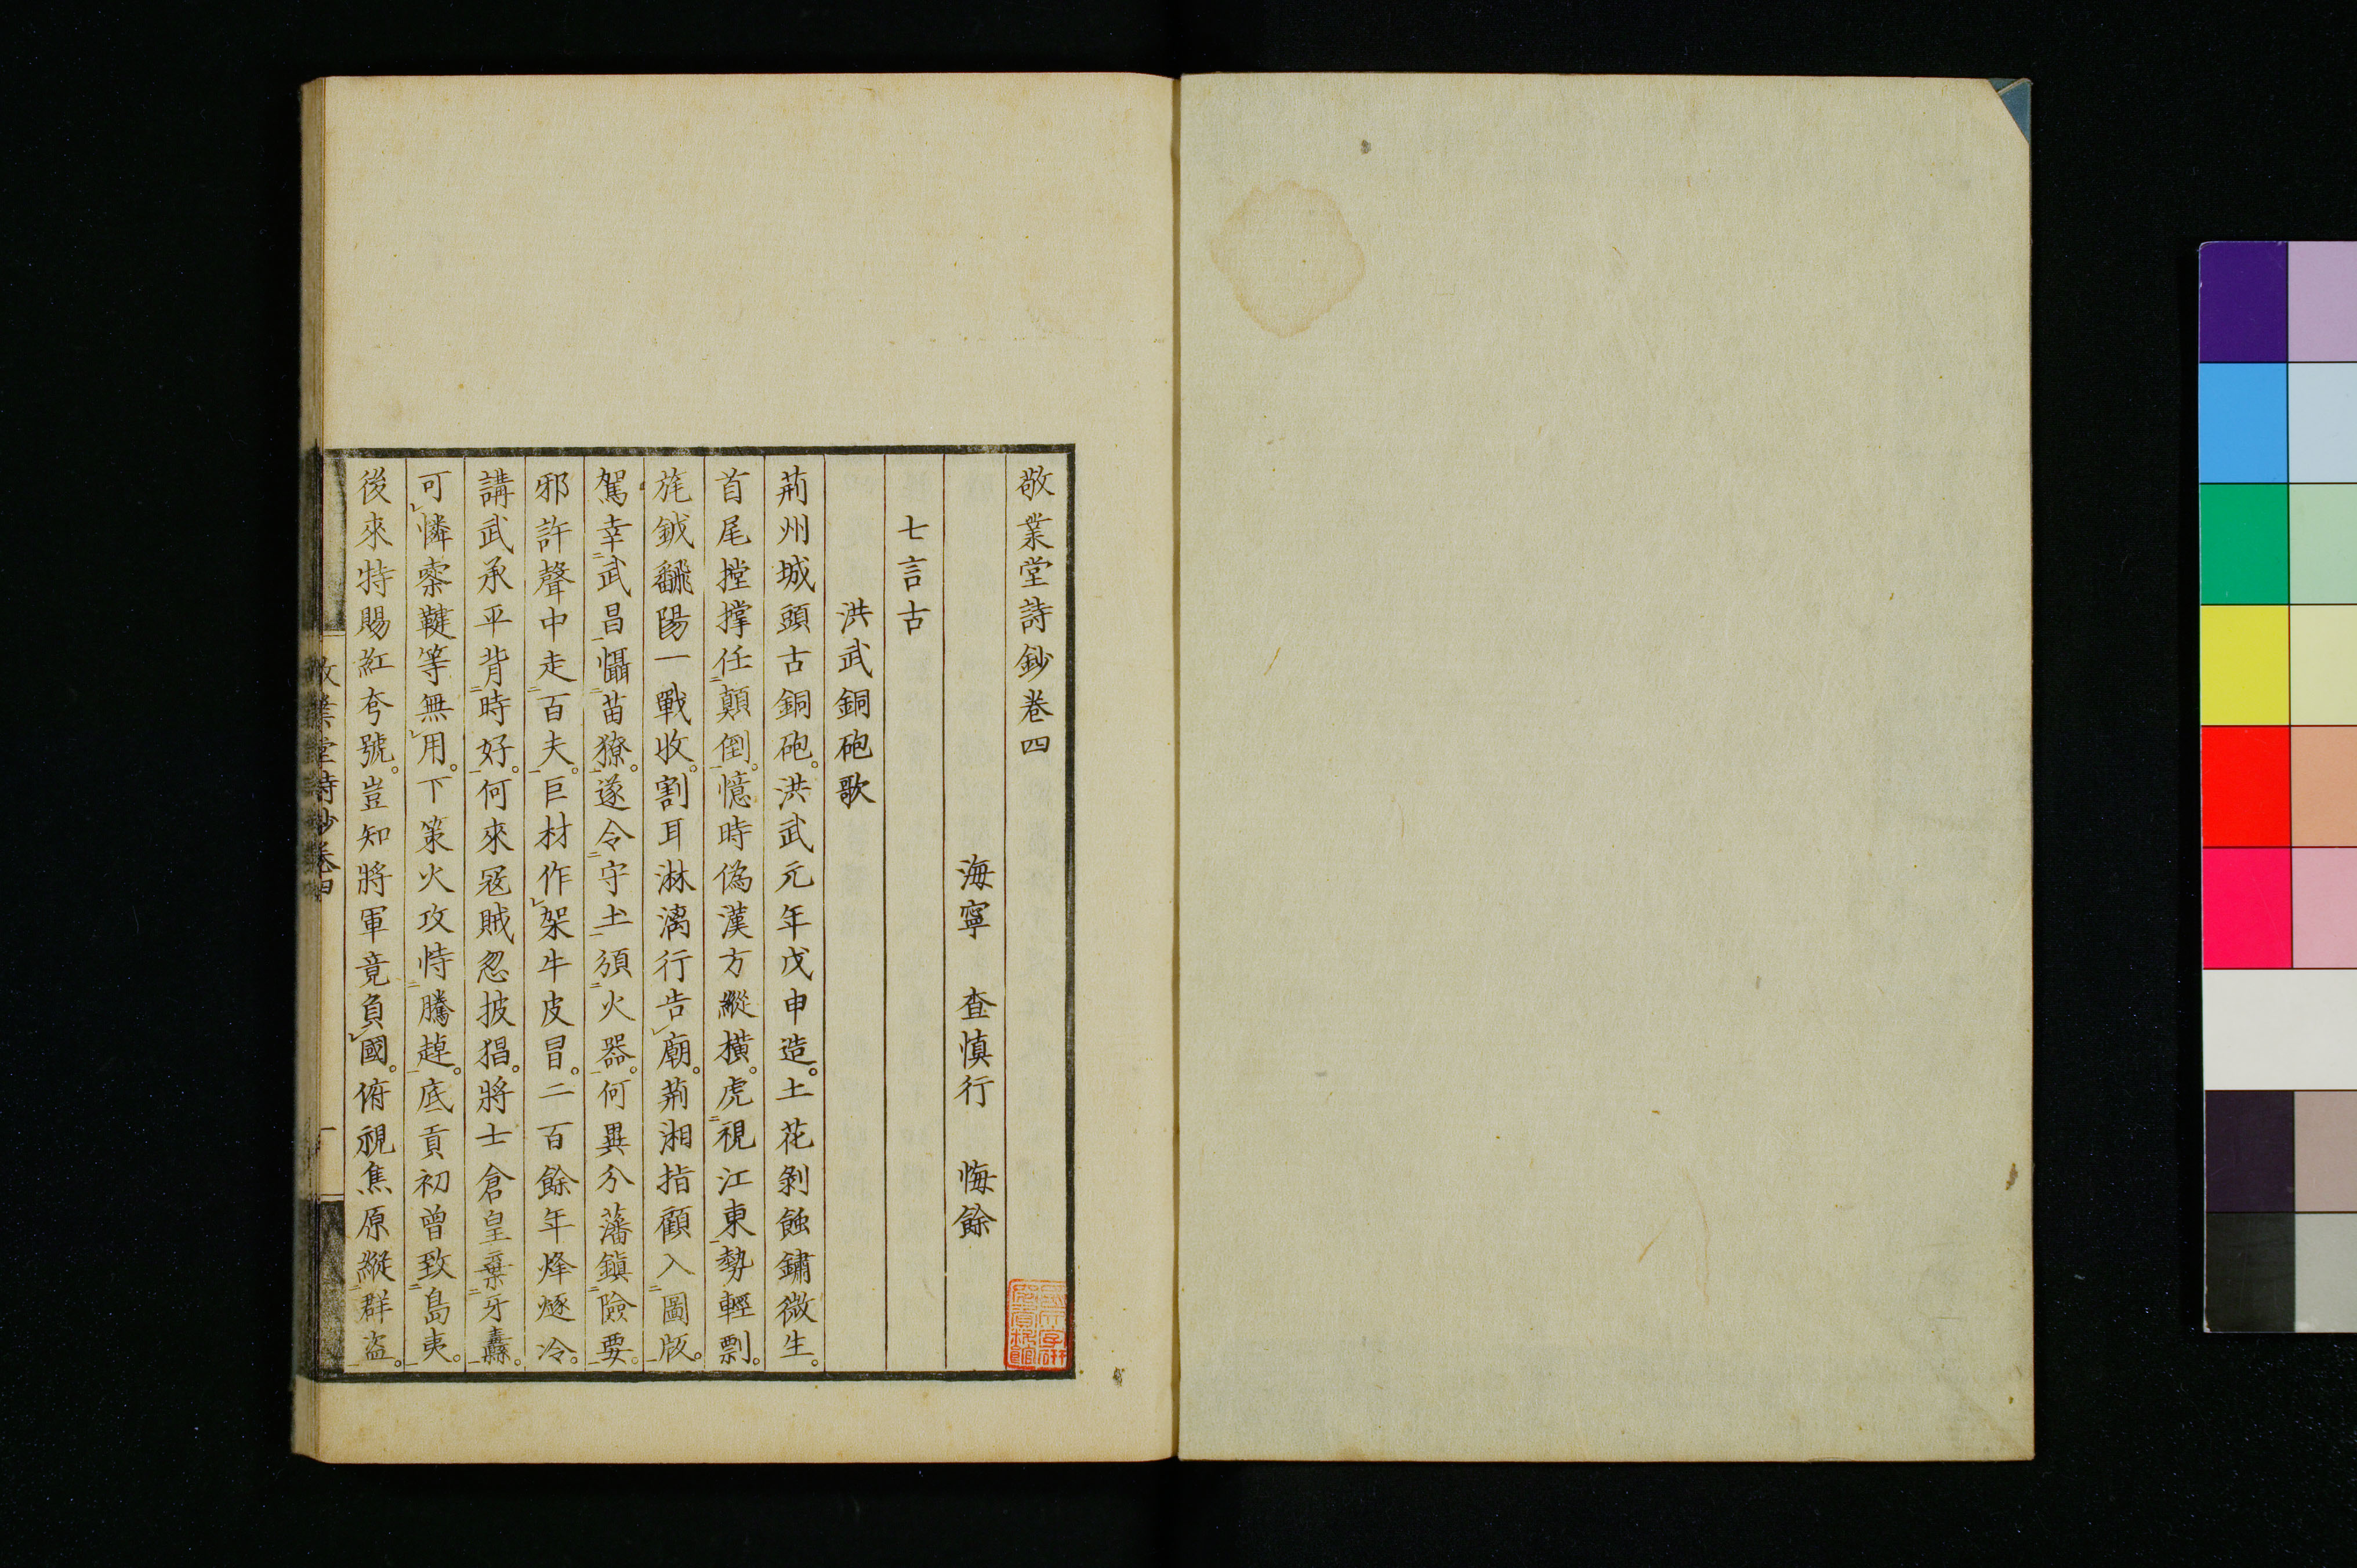 敬業堂詩鈔卷四
海寧　查慎行　悔餘
七言古
洪武銅砲歌
荊州城頭古銅砲。洪武元年戊申造。土花剝蝕鏽微生。
首尾摚撑任顛倒。憶時偽漢方縱橫。虎視江東勢輕剽。
旄鉞飜陽一戰收。割耳淋漓行告廟。荊湘指顧入圖版。
駕幸武昌懾苗獠。遂令守土須火器。何異分藩鎮險要。
邪許聲中走百夫。巨材作架牛皮冒。二百餘年烽燧冷。
講武承平背時好。何來寇賊忽披猖。將士倉皇棄牙纛。
可憐櫜鞬等無用。下策火攻恃騰趠。底貢初曾致島夷。
後來特賜紅夸號。豈知將軍竟負國。俯視焦原縱群盜。
敬業堂詩鈔卷四
一